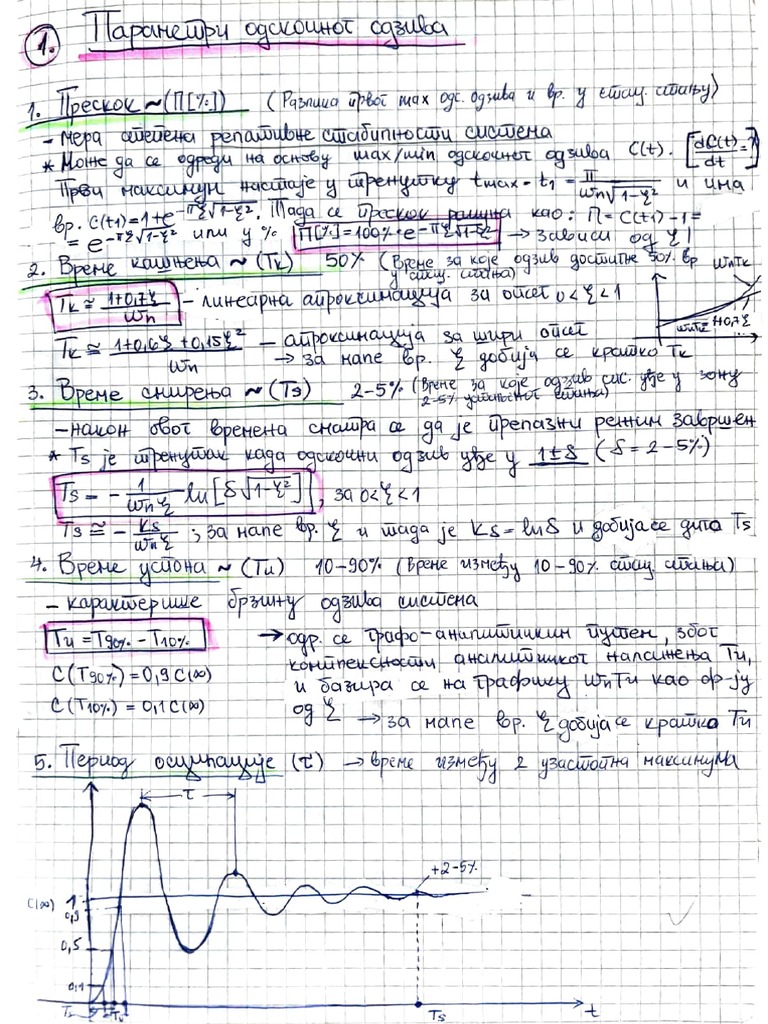 1. Параметри одскочног одзива
1. Прескок ~ (П[%]) (Разлика првог max одс. одзива и вр. у стац. стању)
- мера степена релативне стабилности система
* Може да се одреди на основу max/min одскочног одзива C(t). [dC(t)/dt = ?]
Први максимум настаје у тренутку tmax = t1 = π/(ωn√1-ξ²) и има
вр. C(t1) = 1 + e^-πξ√1-ξ². Тада се прескок рачуна као: П = C(t1) - 1 =
= e^-πξ√1-ξ² или у % П[%] = 100% · e^-πξ√1-ξ² → зависи од ξ!
2. Време кашњења ~ (Tк) 50% (време за које одзив достигне 50% вр
у стац. стања)
ωnTк
Tк ≅ (1+0,7ξ)/ωn - линеарна апроксимација за опсег 0<ξ<1
ωnTк = 1+0,7ξ
Tк ≅ (1+0,6ξ+0,15ξ²)/ωn - апроксимација за шири опсег
→ за мале вр. ξ добија се кратко Tк
3. Време смирења ~ (Ts) 2-5% (време за које одзив сис. уђе у зону
2-5% устаљеног стања)
- након овог времена сматра се да је прелазни режим завршен
* Ts је тренутак када одскочни одзив уђе у 1±δ (δ = 2-5%)
Ts = - 1/(ωnξ) ln[δ√1-ξ²], за 0<ξ<1
Ts ≅ - Ks/(ωnξ) ; за мале вр. ξ и тада је Ks = lnδ и добија се дуго Ts
4. Време успона ~ (Tu) 10-90% (време између 10-90% стац. стања)
- карактерише брзину одзива система
Tu = T90% - T10% → одр. се графо-аналитичким путем, због
комплексности аналитичког налажења Tu,
C(T90%) = 0,9 C(∞)
и базира се на графику ωnTu као ф-ју
C(T10%) = 0,1 C(∞)
од ξ → за мале вр. ξ добија се кратко Tu
5. Период осцилације (τ) → време између 2 узастопна максимума
τ
+2-5%
C(∞) 1
0,9
0,5
0,1
Ts t